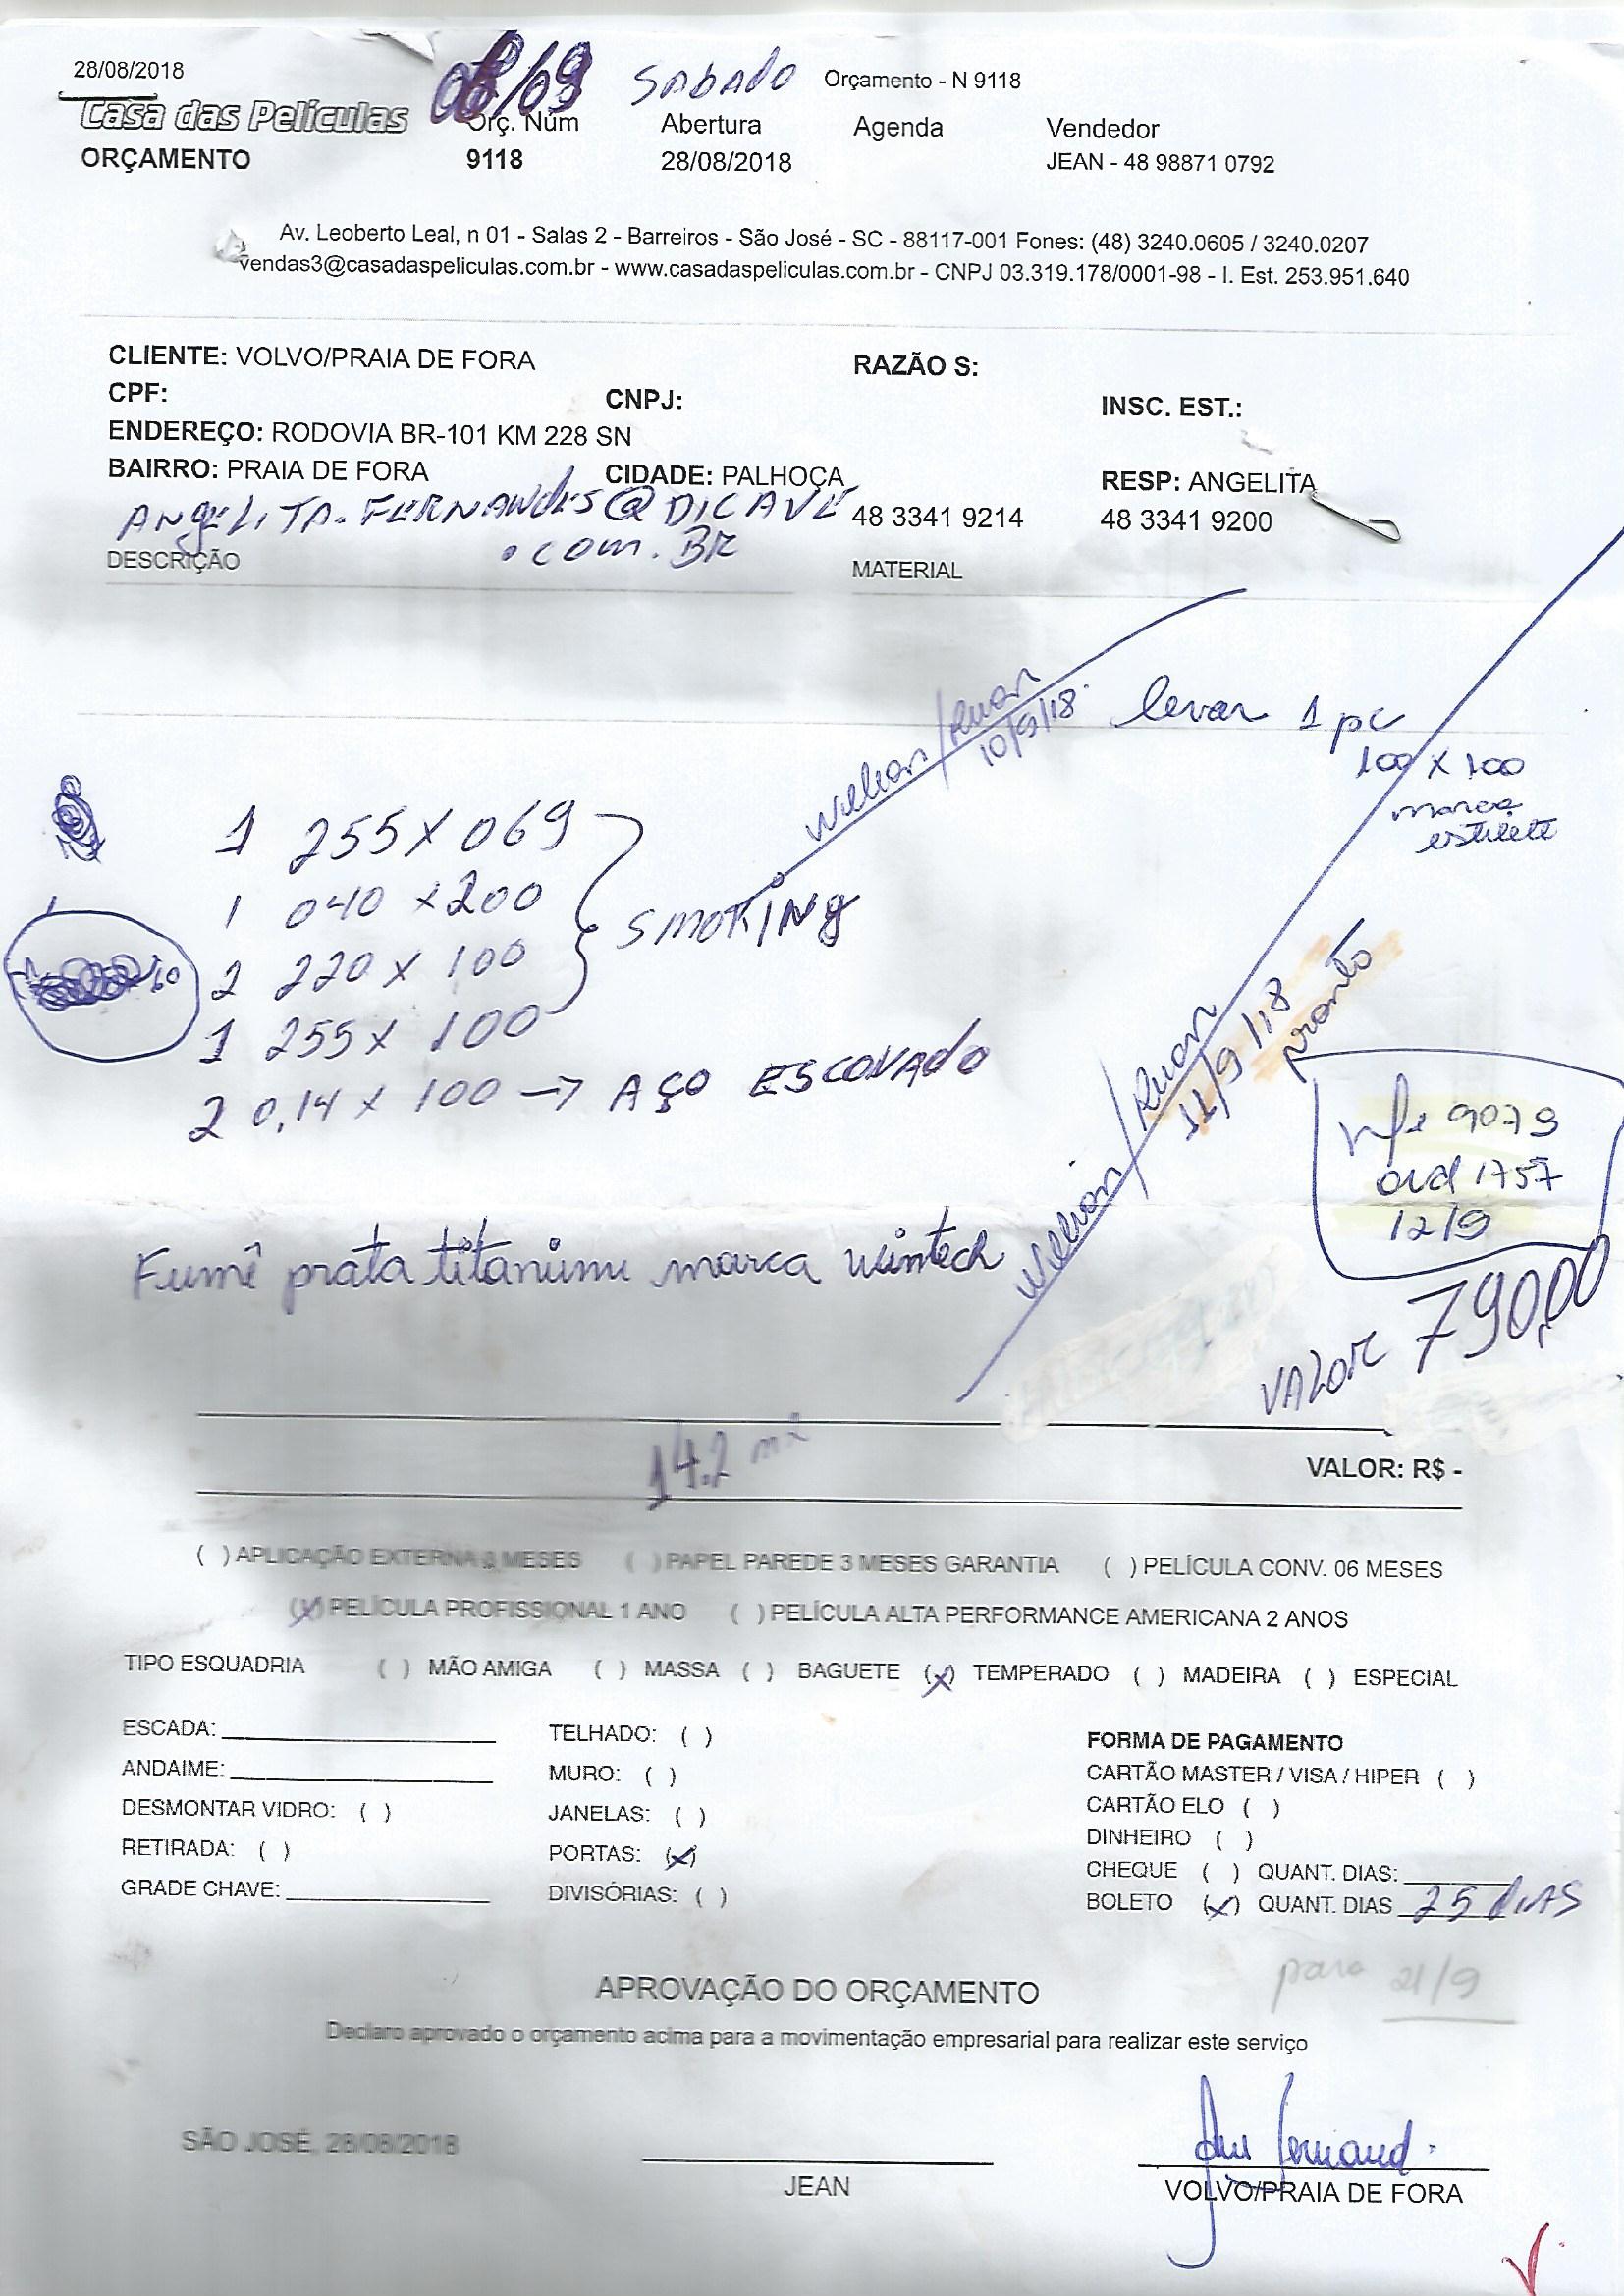 28/08/2018
08/09 SABADO
Orçamento - N 9118
Casa das Películas
Orç. Núm Abertura Agenda Vendedor
ORÇAMENTO 9118 28/08/2018 JEAN - 48 98871 0792
Av. Leoberto Leal, n 01 - Salas 2 - Barreiros - São José - SC - 88117-001 Fones: (48) 3240.0605 / 3240.0207
vendas3@casadaspeliculas.com.br - www.casadaspeliculas.com.br - CNPJ 03.319.178/0001-98 - I. Est. 253.951.640
CLIENTE: VOLVO/PRAIA DE FORA RAZÃO S:
CPF: CNPJ: INSC. EST.:
ENDEREÇO: RODOVIA BR-101 KM 228 SN
BAIRRO: PRAIA DE FORA CIDADE: PALHOÇA RESP: ANGELITA
ANGELITA.FERNANDES@DICAVE 48 3341 9214 48 3341 9200
.COM.BR
DESCRIÇÃO MATERIAL
Welian/Ruan
10/9/18
levar 1 pc
100 X 100
marca
estilete
1 255 X 069
1 040 X 200
2 220 X 100
1 255 X 100
SMOKING
2 0,14 X 100 → AÇO ESCOVADO
Welian/Ruan
11/9/18
pronto
nfe 9079
ord 1757
12/9
Fumê prata titanium marca Wintech
VALOR 790,00
14.2 m²
VALOR: R$ -
( ) APLICAÇÃO EXTERNA 3 MESES ( ) PAPEL PAREDE 3 MESES GARANTIA ( ) PELÍCULA CONV. 06 MESES
(X) PELÍCULA PROFISSIONAL 1 ANO ( ) PELÍCULA ALTA PERFORMANCE AMERICANA 2 ANOS
TIPO ESQUADRIA ( ) MÃO AMIGA ( ) MASSA ( ) BAGUETE (X) TEMPERADO ( ) MADEIRA ( ) ESPECIAL
ESCADA: TELHADO: ( ) FORMA DE PAGAMENTO
ANDAIME: MURO: ( ) CARTÃO MASTER / VISA / HIPER ( )
DESMONTAR VIDRO: ( ) JANELAS: ( ) CARTÃO ELO ( )
RETIRADA: ( ) PORTAS: (X) DINHEIRO ( )
GRADE CHAVE: DIVISÓRIAS: ( ) CHEQUE ( ) QUANT. DIAS:
BOLETO (X) QUANT. DIAS 25 DIAS
para 21/9
APROVAÇÃO DO ORÇAMENTO
Declaro aprovado o orçamento acima para a movimentação empresarial para realizar este serviço
SÃO JOSÉ, 28/08/2018
JEAN VOLVO/PRAIA DE FORA